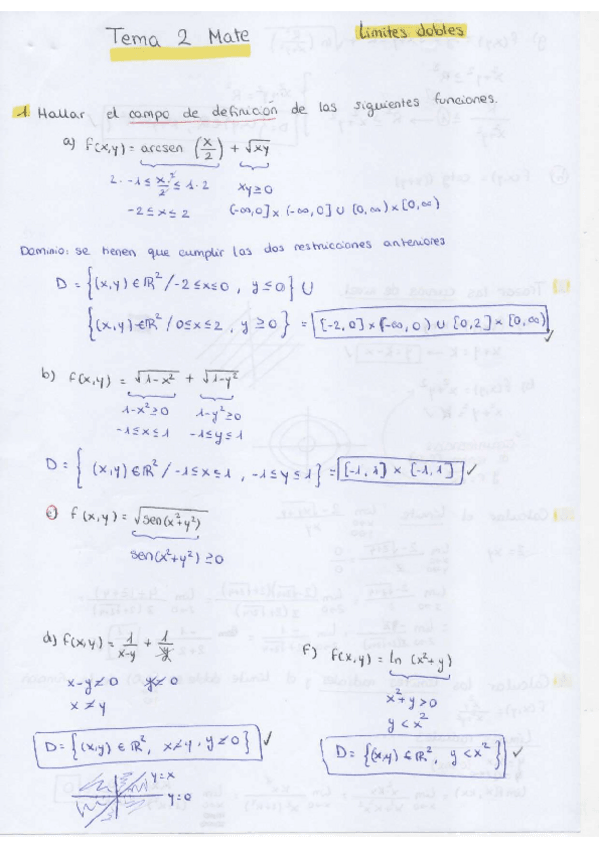 Tema 2 Mate
Límites dobles
1. Hallar el campo de definición de las siguientes funciones.
a) f(x,y) = arcsen (x/2) + √xy
2·-1 ≤ x/2·2 ≤ 1·2 xy≥0
-2≤x≤2 (-∞,0]×(-∞,0] ∪ [0,∞)×[0,∞)
Dominio: se tienen que cumplir las dos restricciones anteriores
D = {(x,y)∈ℝ² / -2≤x≤0, y≤0} ∪
{(x,y)∈ℝ² / 0≤x≤2, y≥0} = [-2,0]×(-∞,0) ∪ [0,2]×[0,∞) ✓
b) f(x,y) = √1-x² + √1-y²
1-x²≥0 1-y²≥0
-1≤x≤1 -1≤y≤1
D = { (x,y)∈ℝ² / -1≤x≤1, -1≤y≤1} = [-1,1] × [-1,1] ✓
f(x,y) = √sen(x²+y²)
sen(x²+y²)≥0
d) f(x,y) = 1/x-y + 1/y
x-y≠0 y≠0
x≠y
D={(x,y)∈ℝ², x≠y, y≠0} ✓
y=x
y=0
f) f(x,y) = ln (x²+y)
x²+y>0
y<x²
D={(x,y)∈ℝ², y<x²} ✓